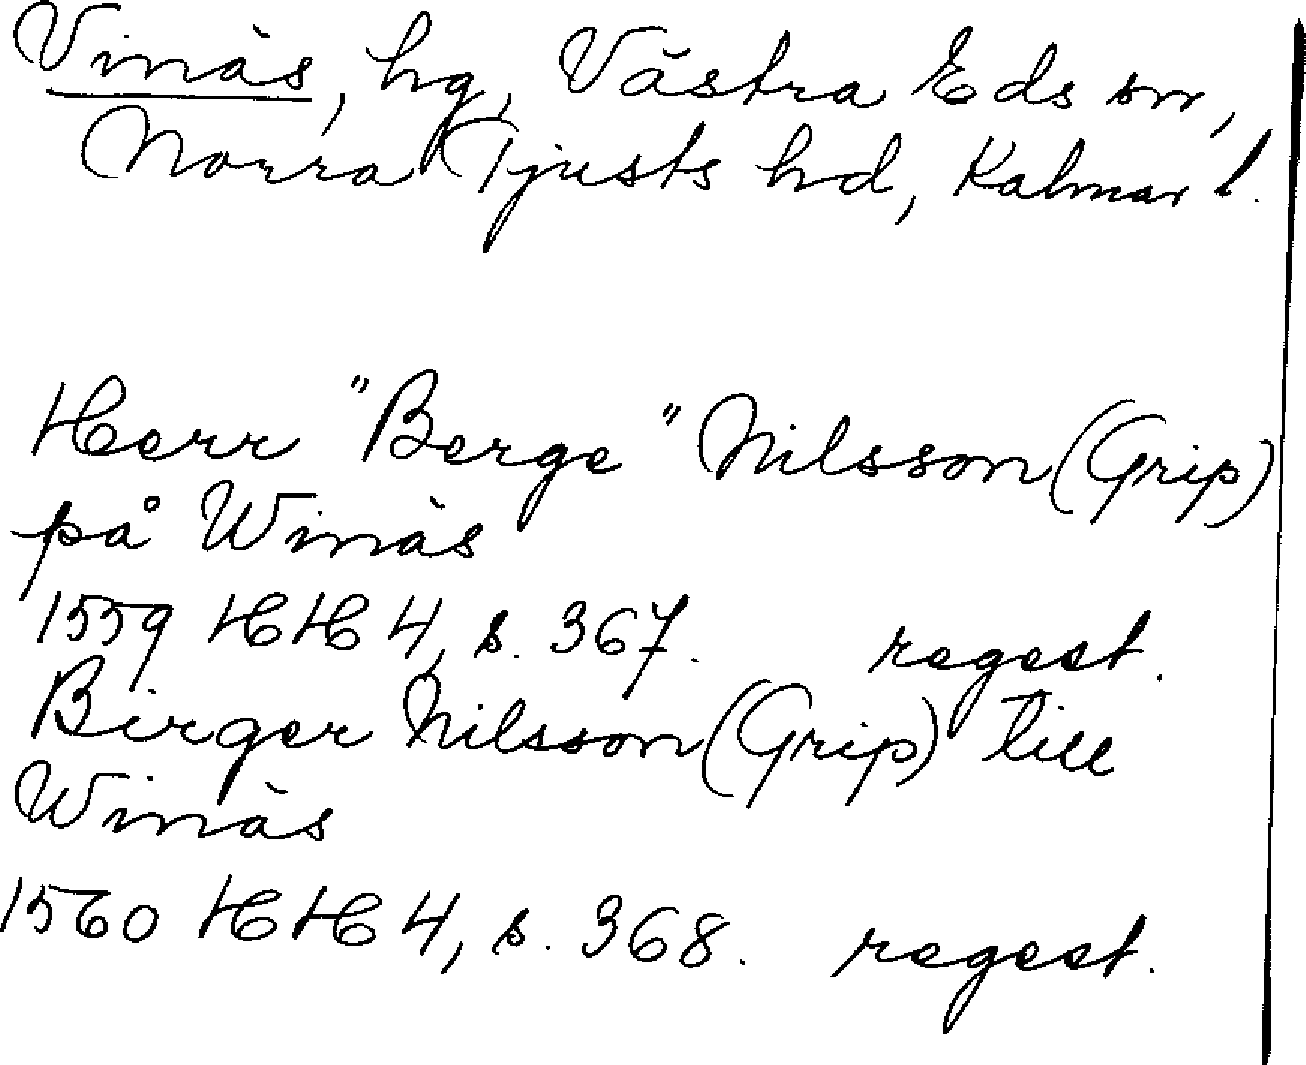 Vinäs, hg, Västra Eds sn,
Norra Tjusts hd, Kalmar l.
Herr "Berge" Nilsson (Grip)
på Winäs
1559 HH 4, s. 367. regest.
Birger Nilsson (Grip) till
Winäs
1560 HH 4, s. 368. regest.